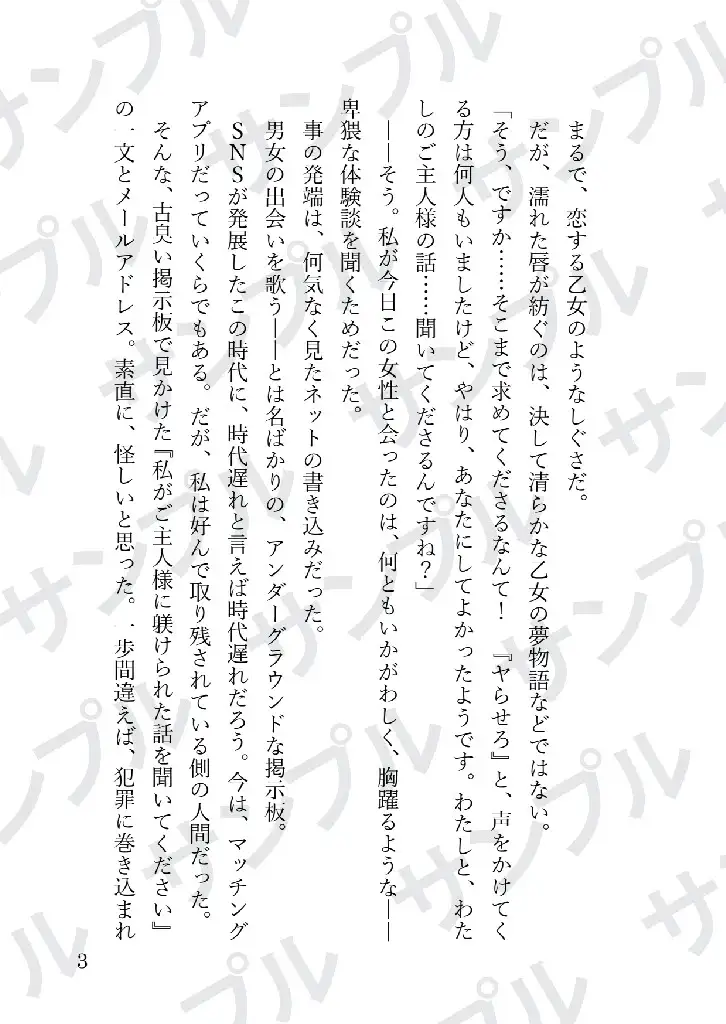 まるで、恋する乙女のようなしぐさだ。
だが、濡れた唇が紡ぐのは、決して清らかな乙女の夢物語などではない。
「そう、ですか……そこまで求めてくださるなんて！　『ヤらせろ』と、声をかけてく
る方は何人もいましたけど、やはり、あなたにしてよかったようです。わたしと、わた
しのご主人様の話……聞いてくださるんですね？」
――そう。私が今日この女性と会ったのは、何ともいかがわしく、胸躍るような――
卑猥な体験談を聞くためだった。
事の発端は、何気なく見たネットの書き込みだった。
男女の出会いを歌う――とは名ばかりの、アンダーグラウンドな掲示板。
SNSが発展したこの時代に、時代遅れと言えば時代遅れだろう。今は、マッチング
アプリだっていくらでもある。だが、私は好んで取り残されている側の人間だった。
そんな、古臭い掲示板で見かけた『私がご主人様に躾けられた話を聞いてください』
の一文とメールアドレス。素直に、怪しいと思った。一歩間違えば、犯罪に巻き込まれ
3
サンプル
サンプル
サンプル
サンプル
サンプル
サンプル
サンプル
サンプル
サンプル
サンプル
サンプル
サンプル